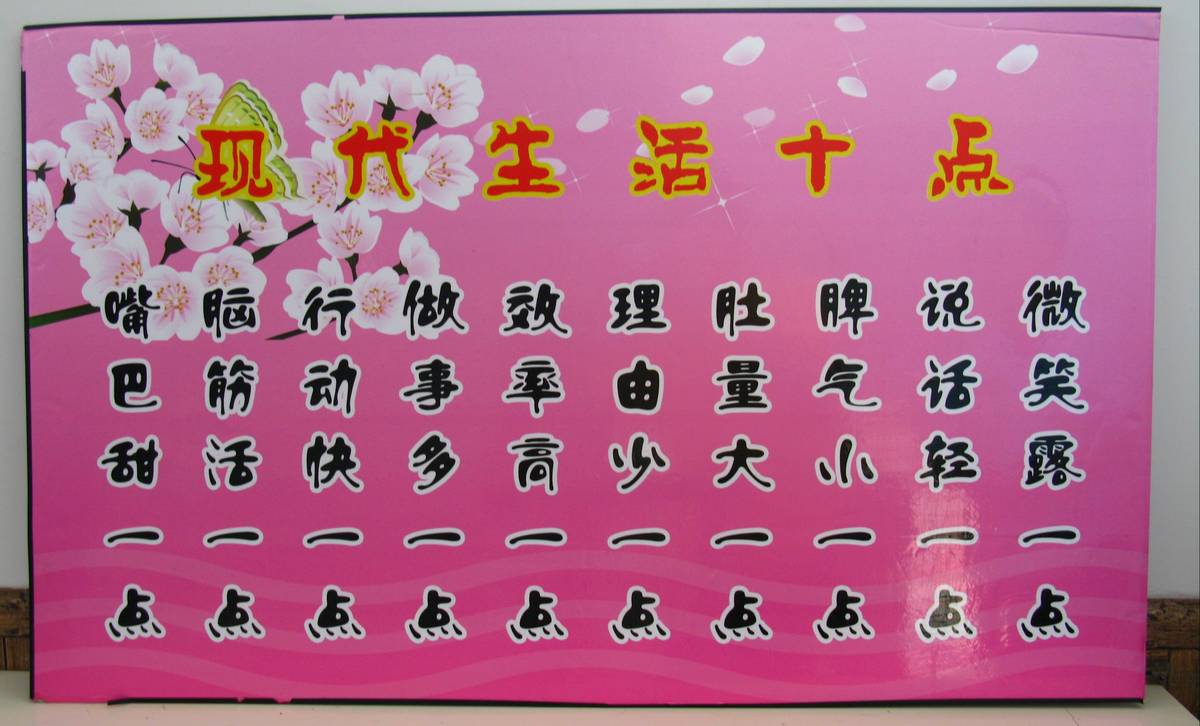 现代生活十点
嘴巴甜一点
脑筋活一点
行动快一点
做事多一点
效率高一点
理由少一点
肚量大一点
脾气小一点
说话轻一点
微笑露一点